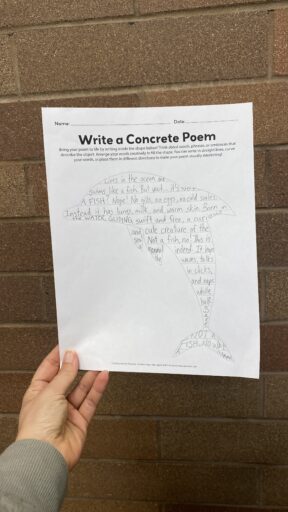 Name: Date:
Write a Concrete Poem
Bring your poem to life by writing inside the shape below! Think about words, phrases, or sentences that
describe the object. Arrange your words creatively to fill the shape. You can write in straight lines, curve
your words, or place them in different directions to make your poem visually interesting!
Lives in the ocean and
swims like a fish. But wait... it's not
A FISH! Nope! No gills, no eggs, no cold scales.
Instead it has lungs, milk, and warm skin. Born in
THE WATER, GLIDING swift and free, a curious
and cute creature of the
sea. Not a fish, no! This is
a mammal indeed. It
waves, talks
in clicks,
and naps
while
half
NOT A
FISH. NO WAY